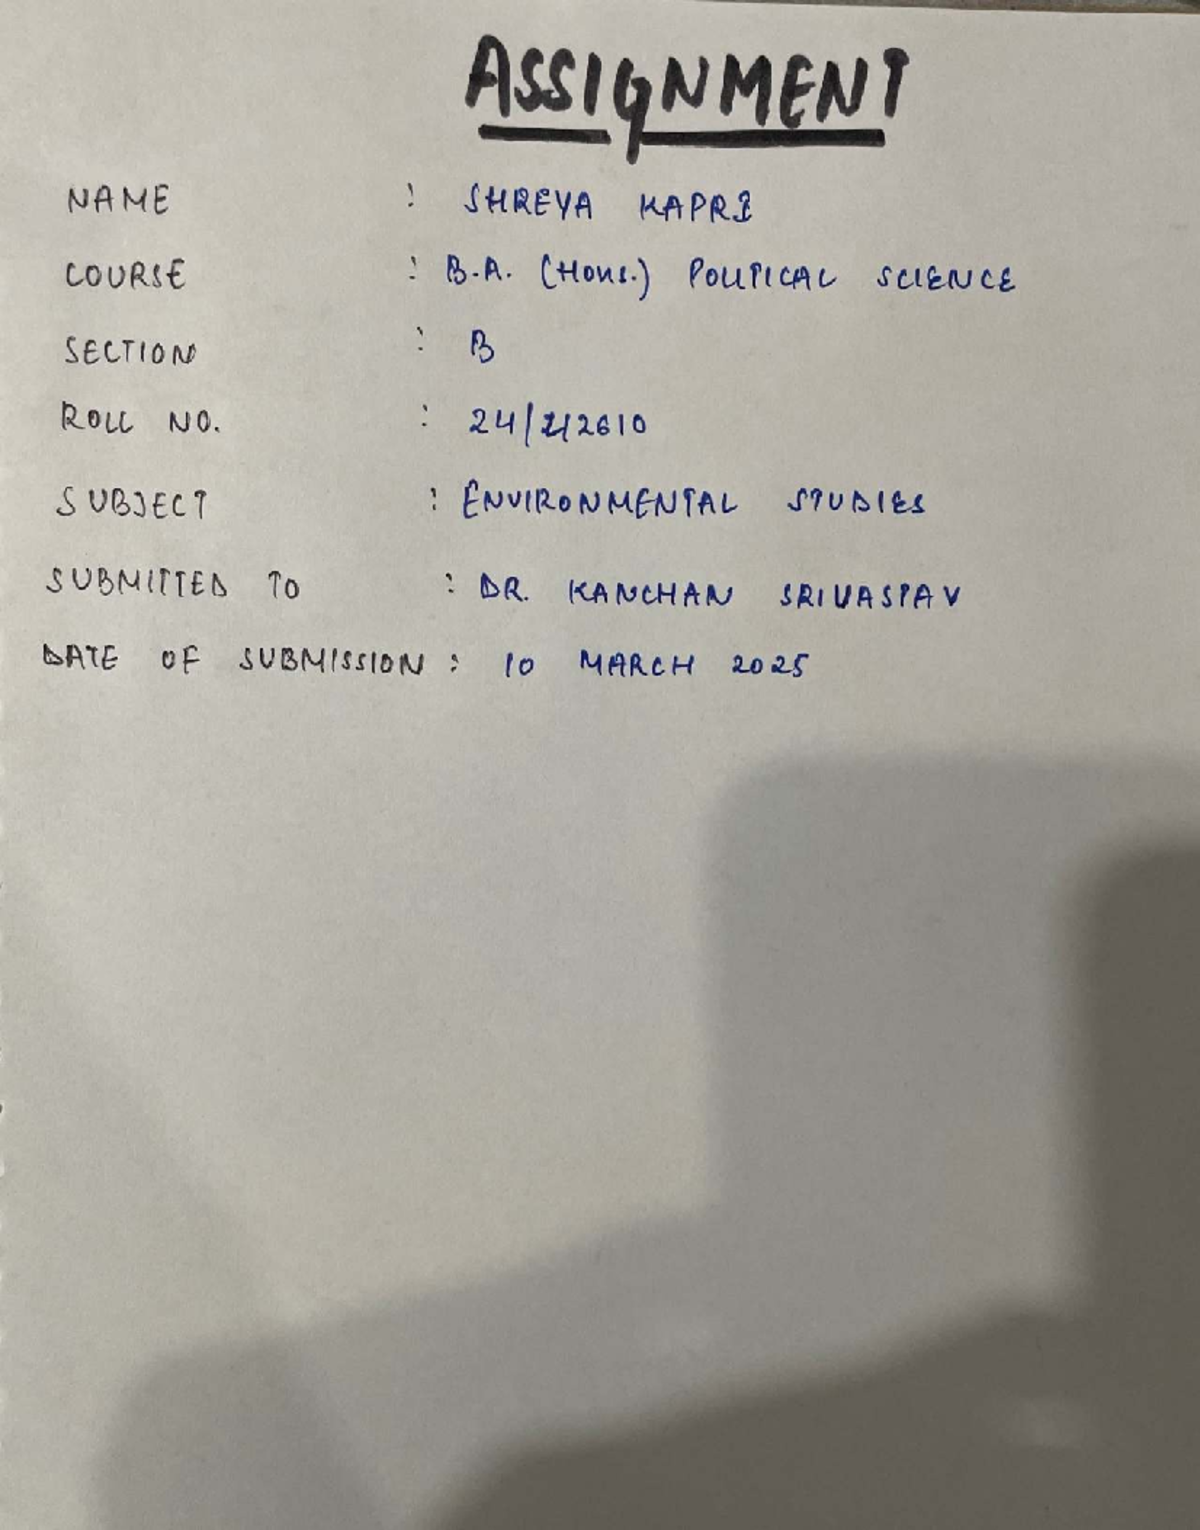 ASSIGNMENT
NAME : SHREYA KAPRI
COURSE : B.A. (Hons.) POLITICAL SCIENCE
SECTION : B
ROLL NO. :
SUBJECT : ENVIRONMENTAL STUDIES
SUBMITTED TO : DR. KANCHAN SRIVASTAV
DATE OF SUBMISSION : 10 MARCH 2025